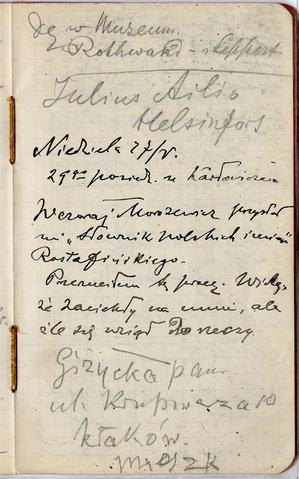 w Muzeum.
Rothwald - i Seppert
Julius Ailio
Helsinfors
Niedziela 27/V.
29go posied. u Karłowicza
Wczoraj Morozewicz przysłał
mi „Słownik polskich imion"
Rostafińskiego.
tę pracę. Widzę,
że zaciekły na mnie, ale
źle się wziął do rzeczy
Giżycka pan.
ul. Krupnicza 10
kłaków.